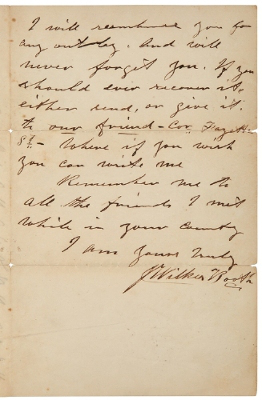 I will reemburce you for
any outlay. And will
never forget you. If you
should ever recover it,
either send, or give it.
to our friend - Cor. Fayette
St - Where if you wish
you can write me
Remember me to
all the friends I met
while in your country
I am Yours truly
J. Wilkes Booth